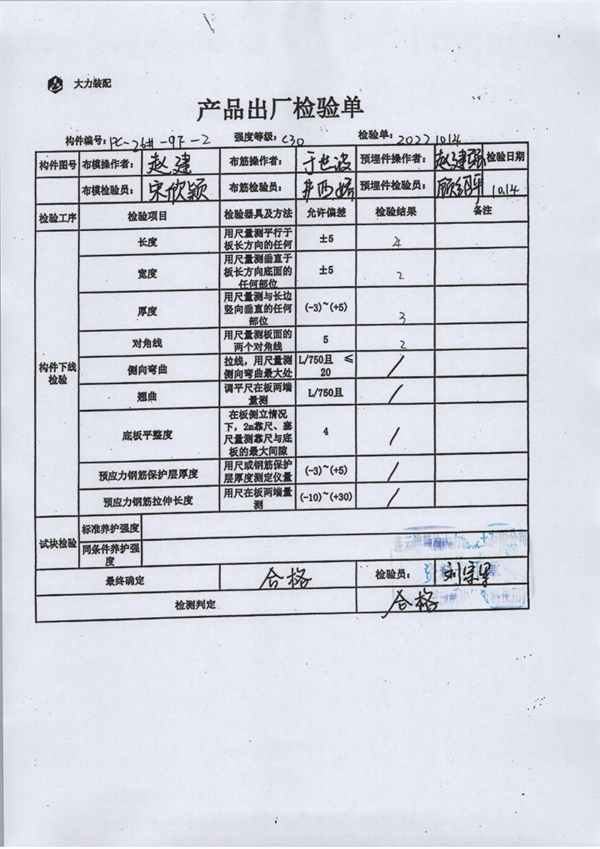 大力装配
产品出厂检验单
构件编号: PC-26#-9F-2 强度等级: C30 检验单: 20221014
构件图号 布模操作者: 赵建 布筋操作者: 于世波 预埋件操作者: 赵建强 检验日期
布模检验员: 宋欣颖 布筋检验员: 预埋件检验员: 10.14
检验工序 检验项目 检验器具及方法 允许偏差 检验结果 备注
构件下线检验
长度 用尺量测平行于板长方向的任何 ±5 4
宽度 用尺量测垂直于板长方向底面的任何部位 ±5 2
厚度 用尺量测与长边竖向垂直的任何部位 (-3)~(+5) 3
对角线 用尺量测板面的两个对角线 5 2
侧向弯曲 拉线，用尺量测侧向弯曲最大处 L/750且 ≤20 /
翘曲 调平尺在板两端量测 L/750且 /
底板平整度 在板侧立情况下，2m靠尺、塞尺量测靠尺与底板的最大间隙 4 /
预应力钢筋保护层厚度 用尺或钢筋保护层厚度测定仪量 (-3)~(+5) /
预应力钢筋拉伸长度 用尺在板两端量测 (-10)~(+30) /
试块检验 标准养护强度
同条件养护强度
最终确定 合格 检验员:
检测判定 合格